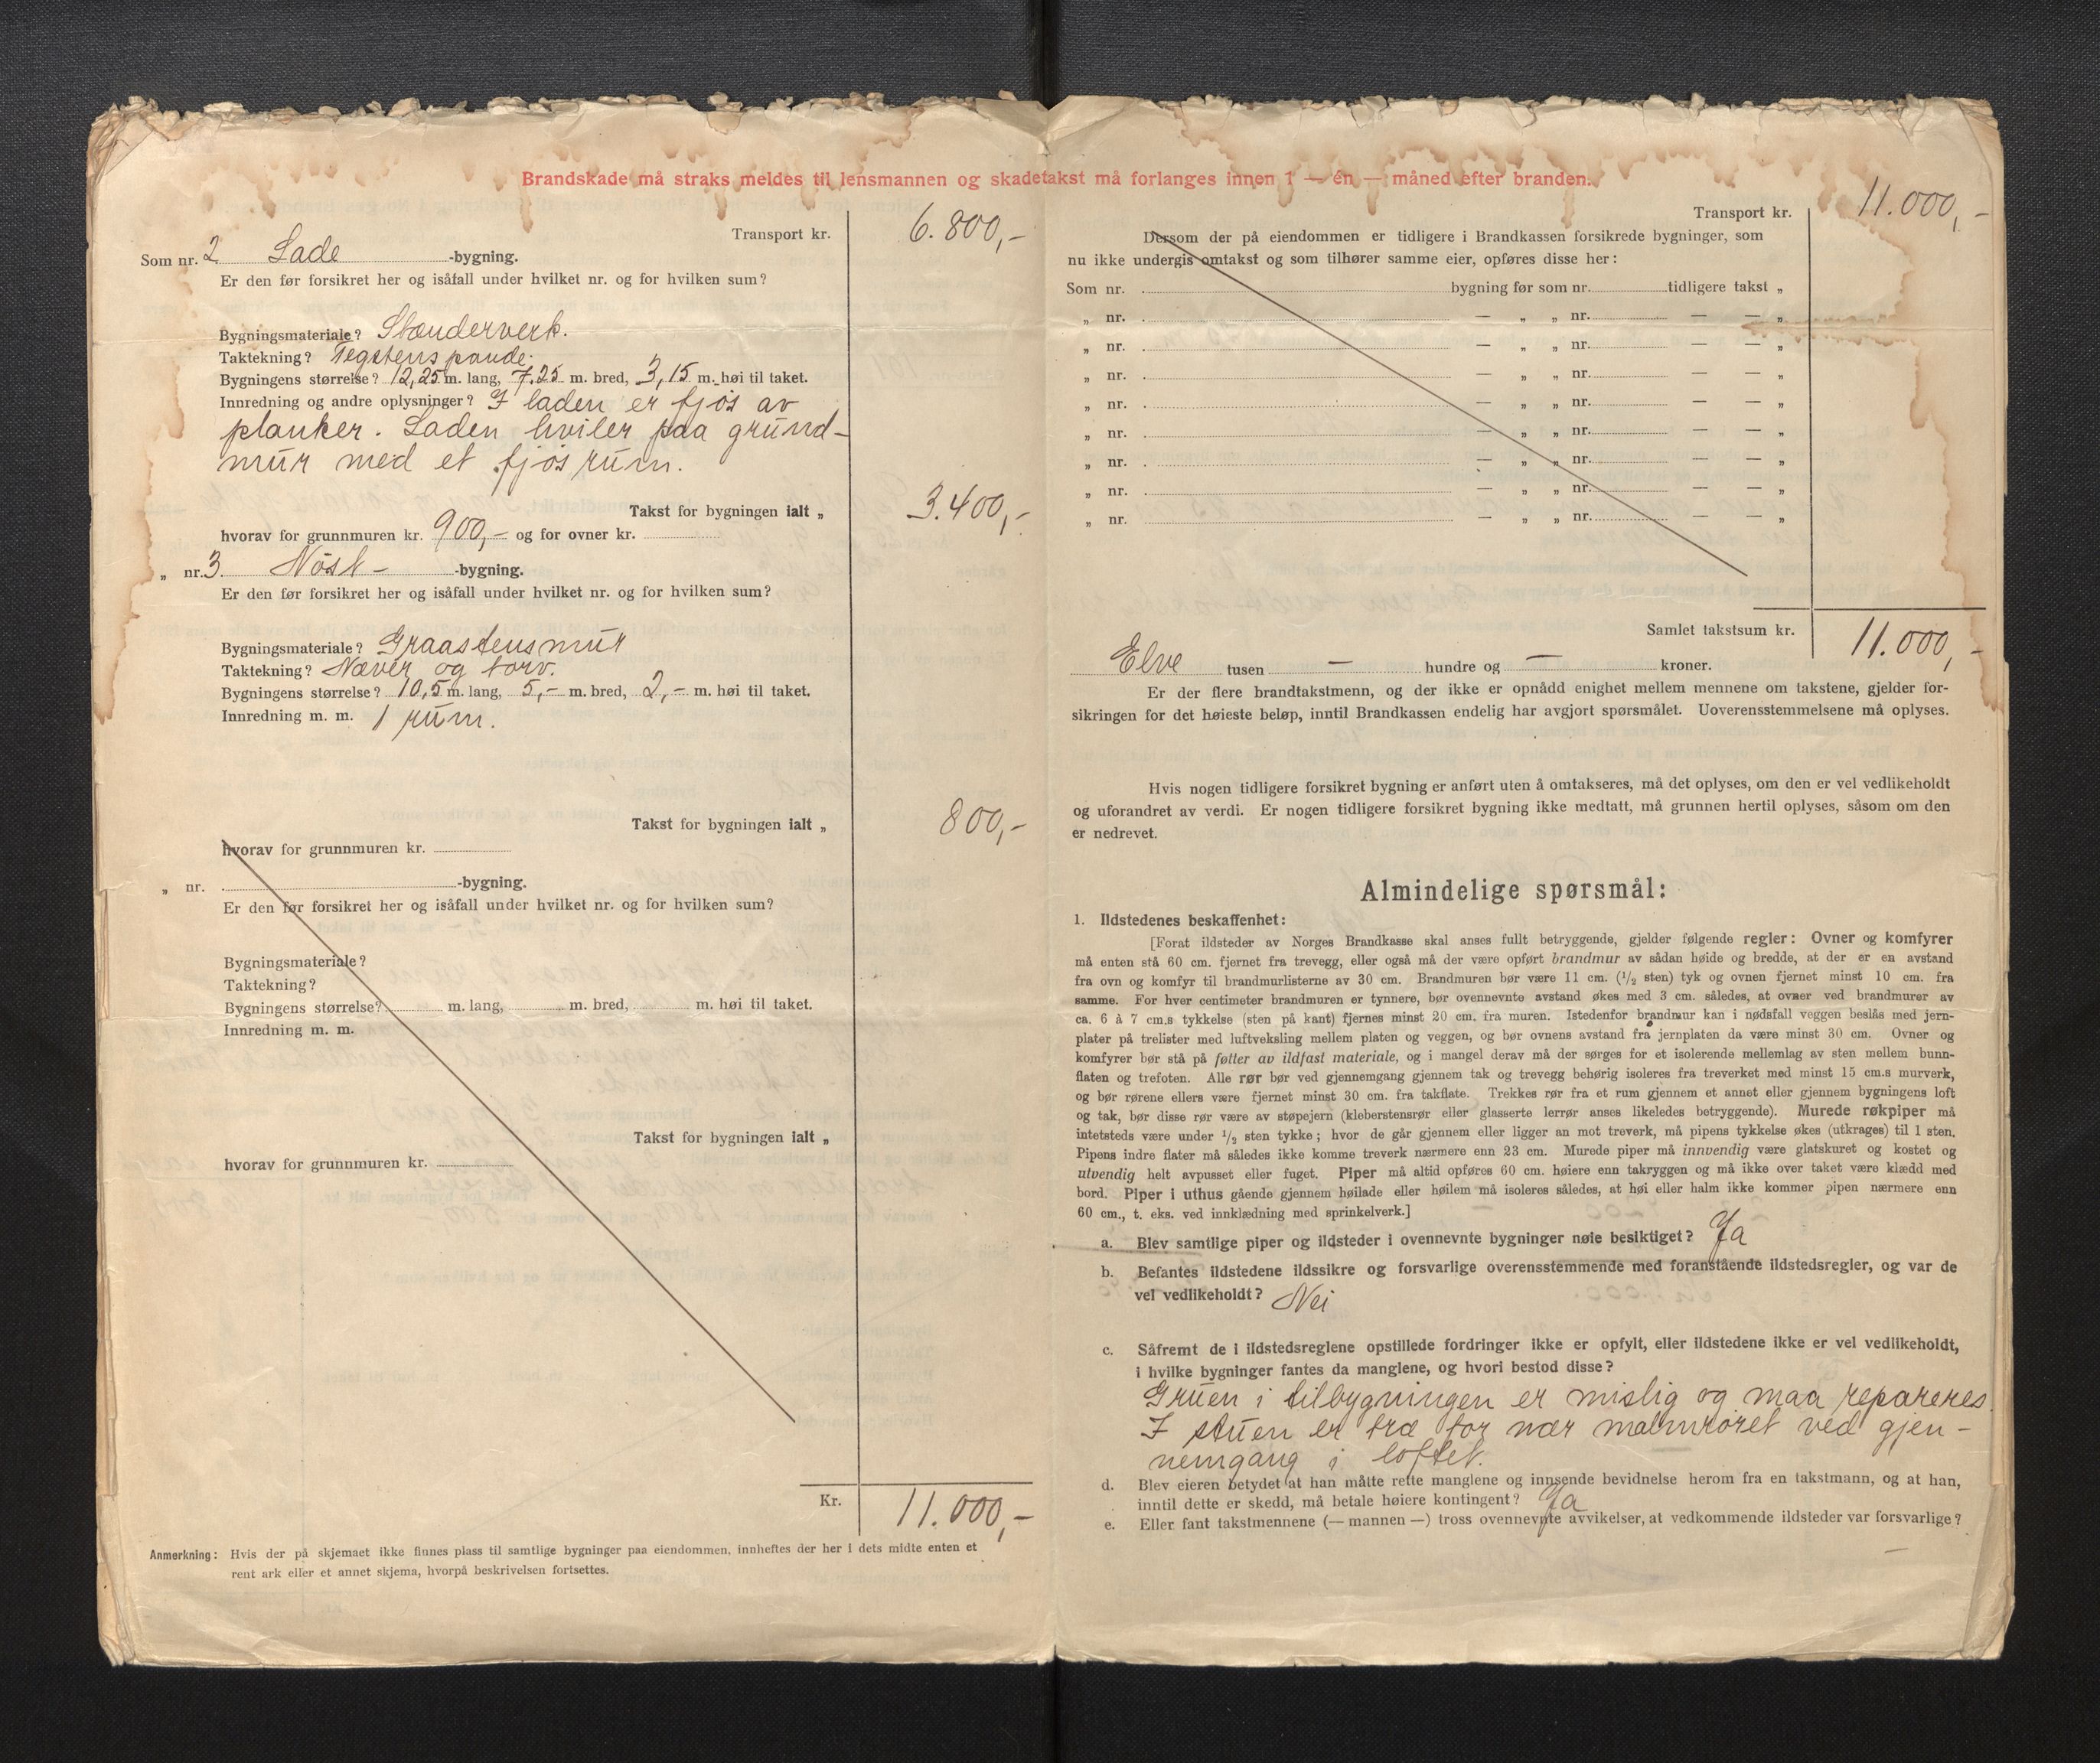 Brandskade må straks meldes til lensmannen og skadetakst må forlanges innen 1 — én — måned efter branden.
Transport kr. 6.800,-
Som nr. 2 Lade -bygning.
Er den før forsikret her og isåfall under hvilket nr. og for hvilken sum?
Bygningsmateriale? Stænderverk.
Taktekning? Tegstens pande.
Bygningens størrelse? 12,25 m. lang, 7.25 m. bred, 3,15 m. høi til taket.
Innredning og andre oplysninger? I laden er fjøs av
planker. Laden hviler paa grund-
mur med et fjøsrum.
Takst for bygningen ialt „ 3.400,-
hvorav for grunnmuren kr. 900,- og for ovner kr.
„ nr. 3 Nøst- -bygning.
Er den før forsikret her og isåfall under hvilket nr. og for hvilken sum?
Bygningsmateriale? Graastensmur
Taktekning? Næver og torv.
Bygningens størrelse? 10,5 m. lang, 5,- m. bred, 2,- m. høi til taket.
Innredning m. m. 1 rum.
Takst for bygningen ialt „ 800,-
hvorav for grunnmuren kr.
„ nr. -bygning.
Er den før forsikret her og isåfall under hvilket nr. og for hvilken sum?
Bygningsmateriale?
Taktekning?
Bygningens størrelse? m. lang, m. bred, m. høi til taket.
Innredning m. m.
Takst for bygningen ialt „
hvorav for grunnmuren kr.
Kr. 11.000,-
Anmerkning: Hvis der på skjemaet ikke finnes plass til samtlige bygninger paa eiendommen, innheftes der her i dets midte enten et
rent ark eller et annet skjema, hvorpå beskrivelsen fortsettes.
Transport kr. 11.000,-
Dersom der på eiendommen er tidligere i Brandkassen forsikrede bygninger, som
nu ikke undergis omtakst og som tilhører samme eier, opføres disse her:
Som nr. bygning før som nr. tidligere takst „
„ nr. — „ „ nr. — — „
„ nr. — „ „ nr. — — „
„ nr. — „ „ nr. — — „
„ nr. — „ „ nr. — — „
„ nr. — „ „ nr. — — „
„ nr. — „ „ nr. — — „
„ nr. — „ „ nr. — — „
„ nr. — „ „ nr. — — „
Samlet takstsum kr. 11.000,-
Elve tusen — hundre og — kroner.
Er der flere brandtakstmenn, og der ikke er opnådd enighet mellem mennene om takstene, gjelder for-
sikringen for det høieste beløp, inntil Brandkassen endelig har avgjort spørsmålet. Uoverensstemmelsene må oplyses.
Hvis nogen tidligere forsikret bygning er anført uten å omtakseres, må det oplyses, om den er vel vedlikeholdt
og uforandret av verdi. Er nogen tidligere forsikret bygning ikke medtatt, må grunnen hertil oplyses, såsom om den
er nedrevet.
Almindelige spørsmål:
1. Ildstedenes beskaffenhet:
[Forat ildsteder av Norges Brandkasse skal anses fullt betryggende, gjelder følgende regler: Ovner og komfyrer
må enten stå 60 cm. fjernet fra trevegg, eller også må der være opført brandmur av sådan høide og bredde, at der er en avstand
fra ovn og komfyr til brandmurlisterne av 30 cm. Brandmuren bør være 11 cm. (1/2 sten) tyk og ovnen fjernet minst 10 cm. fra
samme. For hver centimeter brandmuren er tynnere, bør ovennevnte avstand økes med 3 cm. således, at ovner ved brandmurer av
ca. 6 à 7 cm.s tykkelse (sten på kant) fjernes minst 20 cm. fra muren. Istedenfor brandmur kan i nødsfall veggen beslås med jern-
plater på trelister med luftveksling mellem platen og veggen, og bør ovnens avstand fra jernplaten da være minst 30 cm. Ovner og
komfyrer bør stå på føtter av ildfast materiale, og i mangel derav må der sørges for et isolerende mellemlag av sten mellem bunn-
flaten og trefoten. Alle rør bør ved gjennemgang gjennem tak og trevegg behørig isoleres fra treverket med minst 15 cm.s murverk,
og bør rørene ellers være fjernet minst 30 cm. fra takflate. Trekkes rør fra et rum gjennem et annet eller gjennem bygningens loft
og tak, bør disse rør være av støpejern (kleberstensrør eller glasserte lerrør anses likeledes betryggende). Murede røkpiper må
intetsteds være under 1/2 sten tykke; hvor de går gjennem eller ligger an mot treverk, må pipens tykkelse økes (utkrages) til 1 sten.
Pipens indre flater må således ikke komme treverk nærmere enn 23 cm. Murede piper må innvendig være glatskuret og kostet og
utvendig helt avpusset eller fuget. Piper må altid opføres 60 cm. høiere enn takryggen og må ikke over taket være klædd med
bord. Piper i uthus gående gjennem høilade eller høilem må isoleres således, at høi eller halm ikke kommer pipen nærmere enn
60 cm., t. eks. ved innklædning med sprinkelverk.]
a. Blev samtlige piper og ildsteder i ovennevnte bygninger nøie besiktiget? Ja
b. Befantes ildstedene ildssikre og forsvarlige overensstemmende med foranstående ildstedsregler, og var de
vel vedlikeholdt? Nei
c. Såfremt de i ildstedsreglene opstillede fordringer ikke er opfylt, eller ildstedene ikke er vel vedlikeholdt,
i hvilke bygninger fantes da manglene, og hvori bestod disse?
Gruen i tilbygningen er mislig og maa repareres.
I stuen er træ for nær malmrøret ved gjen-
nemgang i loftet.
d. Blev eieren betydet at han måtte rette manglene og innsende bevidnelse herom fra en takstmann, og at han,
inntil dette er skedd, må betale høiere kontingent? Ja
e. Eller fant takstmennene (— mannen —) tross ovennevnte avvikelser, at vedkommende ildsteder var forsvarlige?
—